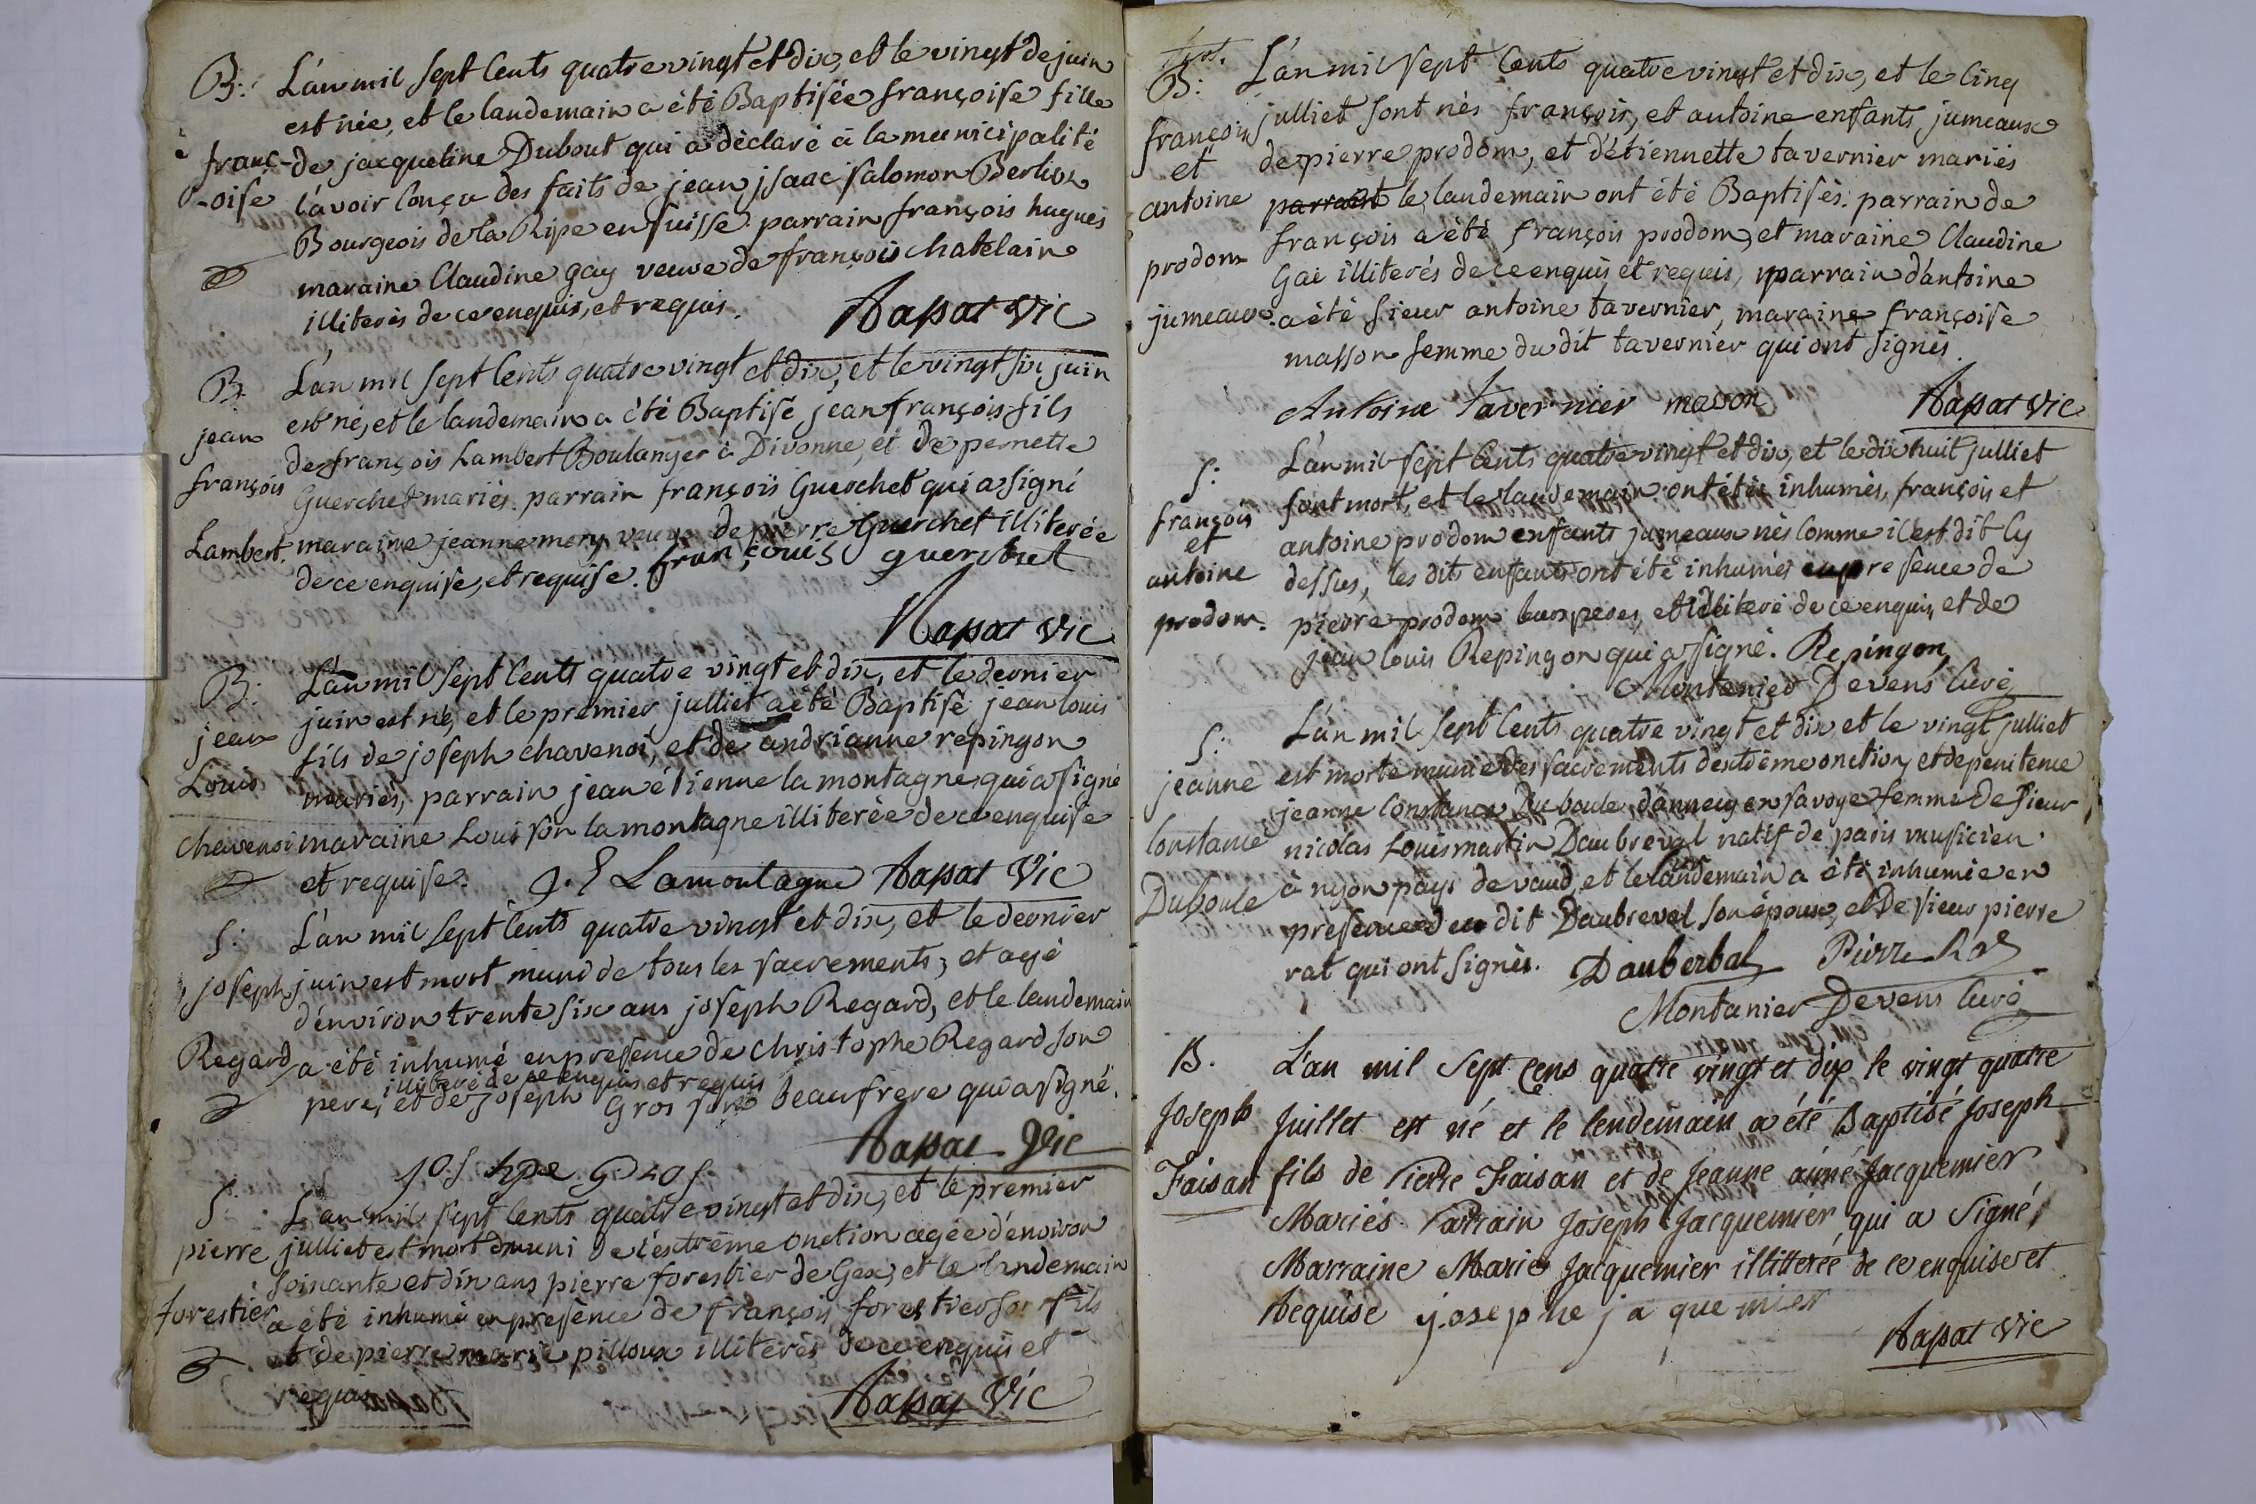 B: L'an mil sept Cents quatre vingt et dix, et le vingt de juin
est née, et le landemain a été Baptisée françoise fille
franç- de jacqueline Dubout qui a déclaré à la municipalité
-oise l'avoir Conçu des faits de jean jsaac salomon Berlioz
Bourgeois de la Ripe en suisse. parrain françois hugues
maraine Claudine gay veuve de françois chatelain
illiterès de ce enquis, et requis. Rapat Vic
B. L'an mil sept Cents quatre vingt et dix, et le vingt six juin
jean est né, et le landemain a été Baptisé jean françois fils
de françois Lambert Boulanger à Divonne, et de pernette
françois Guerchet mariés. parrain françois Guerchet qui a signé
Lambert. maraine jeanne mery veuve de pierre Guerchet illiterée
de ce enquise, et requise. françouis guerchet
Rapat Vic
B: L'an mil sept Cents quatre vingt et dix, et le dernier
jean juin est né, et le premier julliet a été Baptisé jean louis
fils de joseph chavenoi, et de andrianne repingon
Louis mariés, parrain jean étienne la montagne qui a signé
chavenoi maraine Louison la montagne illiterée de ce enquise
et requise. J. E Lamontagne Rapat Vic
S: L'an mil sept Cents quatre vingt et dix, et le dernier
joseph juin est mort muni de tous les sacrements, et agé
d'environ trente six ans joseph Regard, et le landemain
Regard a été inhumé en presence de christophe Regard son
illiteré de ce enquis et requis
pere, et de joseph Gros son beaufrere qui a signé.
Rapat Vic
jos hpe gros
S: L'an mil sept Cents quatre vingt et dix, et le premier
pierre julliet est mort muni de l'extrême onction agée d'environ
soixante et dix ans pierre forestier de Gex, et le landemain
forestier a été inhumé en presence de françois forestier son fils
et de pierre marie pilloux illiterés de ce enquis et
requis Rapat Vic
B: L'an mil sept Cents quatre vingt et dix, et le Cinq
françois julliet sont nés françois, et antoine enfants jumeaux
et de pierre prodom, et d'étiennette tavernier mariés
antoine parrain le landemain ont été Baptisés. parrain de
françois a été françois prodom, et maraine Claudine
prodom Gai illiterés de ce enquis et requis, parrain d'antoine
jumeaux. a été sieur antoine tavernier, maraine françoise
masson femme du dit tavernier qui ont signés.
Antoine Tavernier masson Rapat Vic
S: L'an mil sept Cents quatre vingt et dix, et le dix huit julliet
françois sont mort, et le landemain ont étés inhumés, françois et
et antoine prodom enfants jumeaux nés comme il est dit Cy
antoine dessus, les dits enfants ont été inhumés en presence de
prodom. pierre prodom leurs peres, et illiteré de ce enquis, et de
jean louis Repingon qui a signé. Repingon
Montanier Devens Curé
S: L'an mil sept Cents quatre vingt et dix et le vingt julliet
jeanne est morte munie des sacrements d'extrême onction, et de penitence
jeanne Constance Duboule d'annecy en savoye femme de sieur
Constance nicolas Louis martin Daubreval natif de paris musicien
Duboule à nyon pays de vaud, et le landemain a été inhumée en
presence du dit Daubreval son époux, et De sieur pierre
rat qui ont signés. Dauberbal Pierre Rat
Montanier Devens Curé
B. L'an mil sept cens quatre vingt et dix le vingt quatre
Joseph Juillet est né et le lendemain a été Baptisé Joseph
Faisan fils de Pierre Faisan et de Jeanne aimé Jacquemier
Mariés. Parrain Joseph Jacquemier qui a signé,
Marraine Marie Jacquemier illitterée de ce enquise et
Requise josephe jaquemier
Rapat Vic